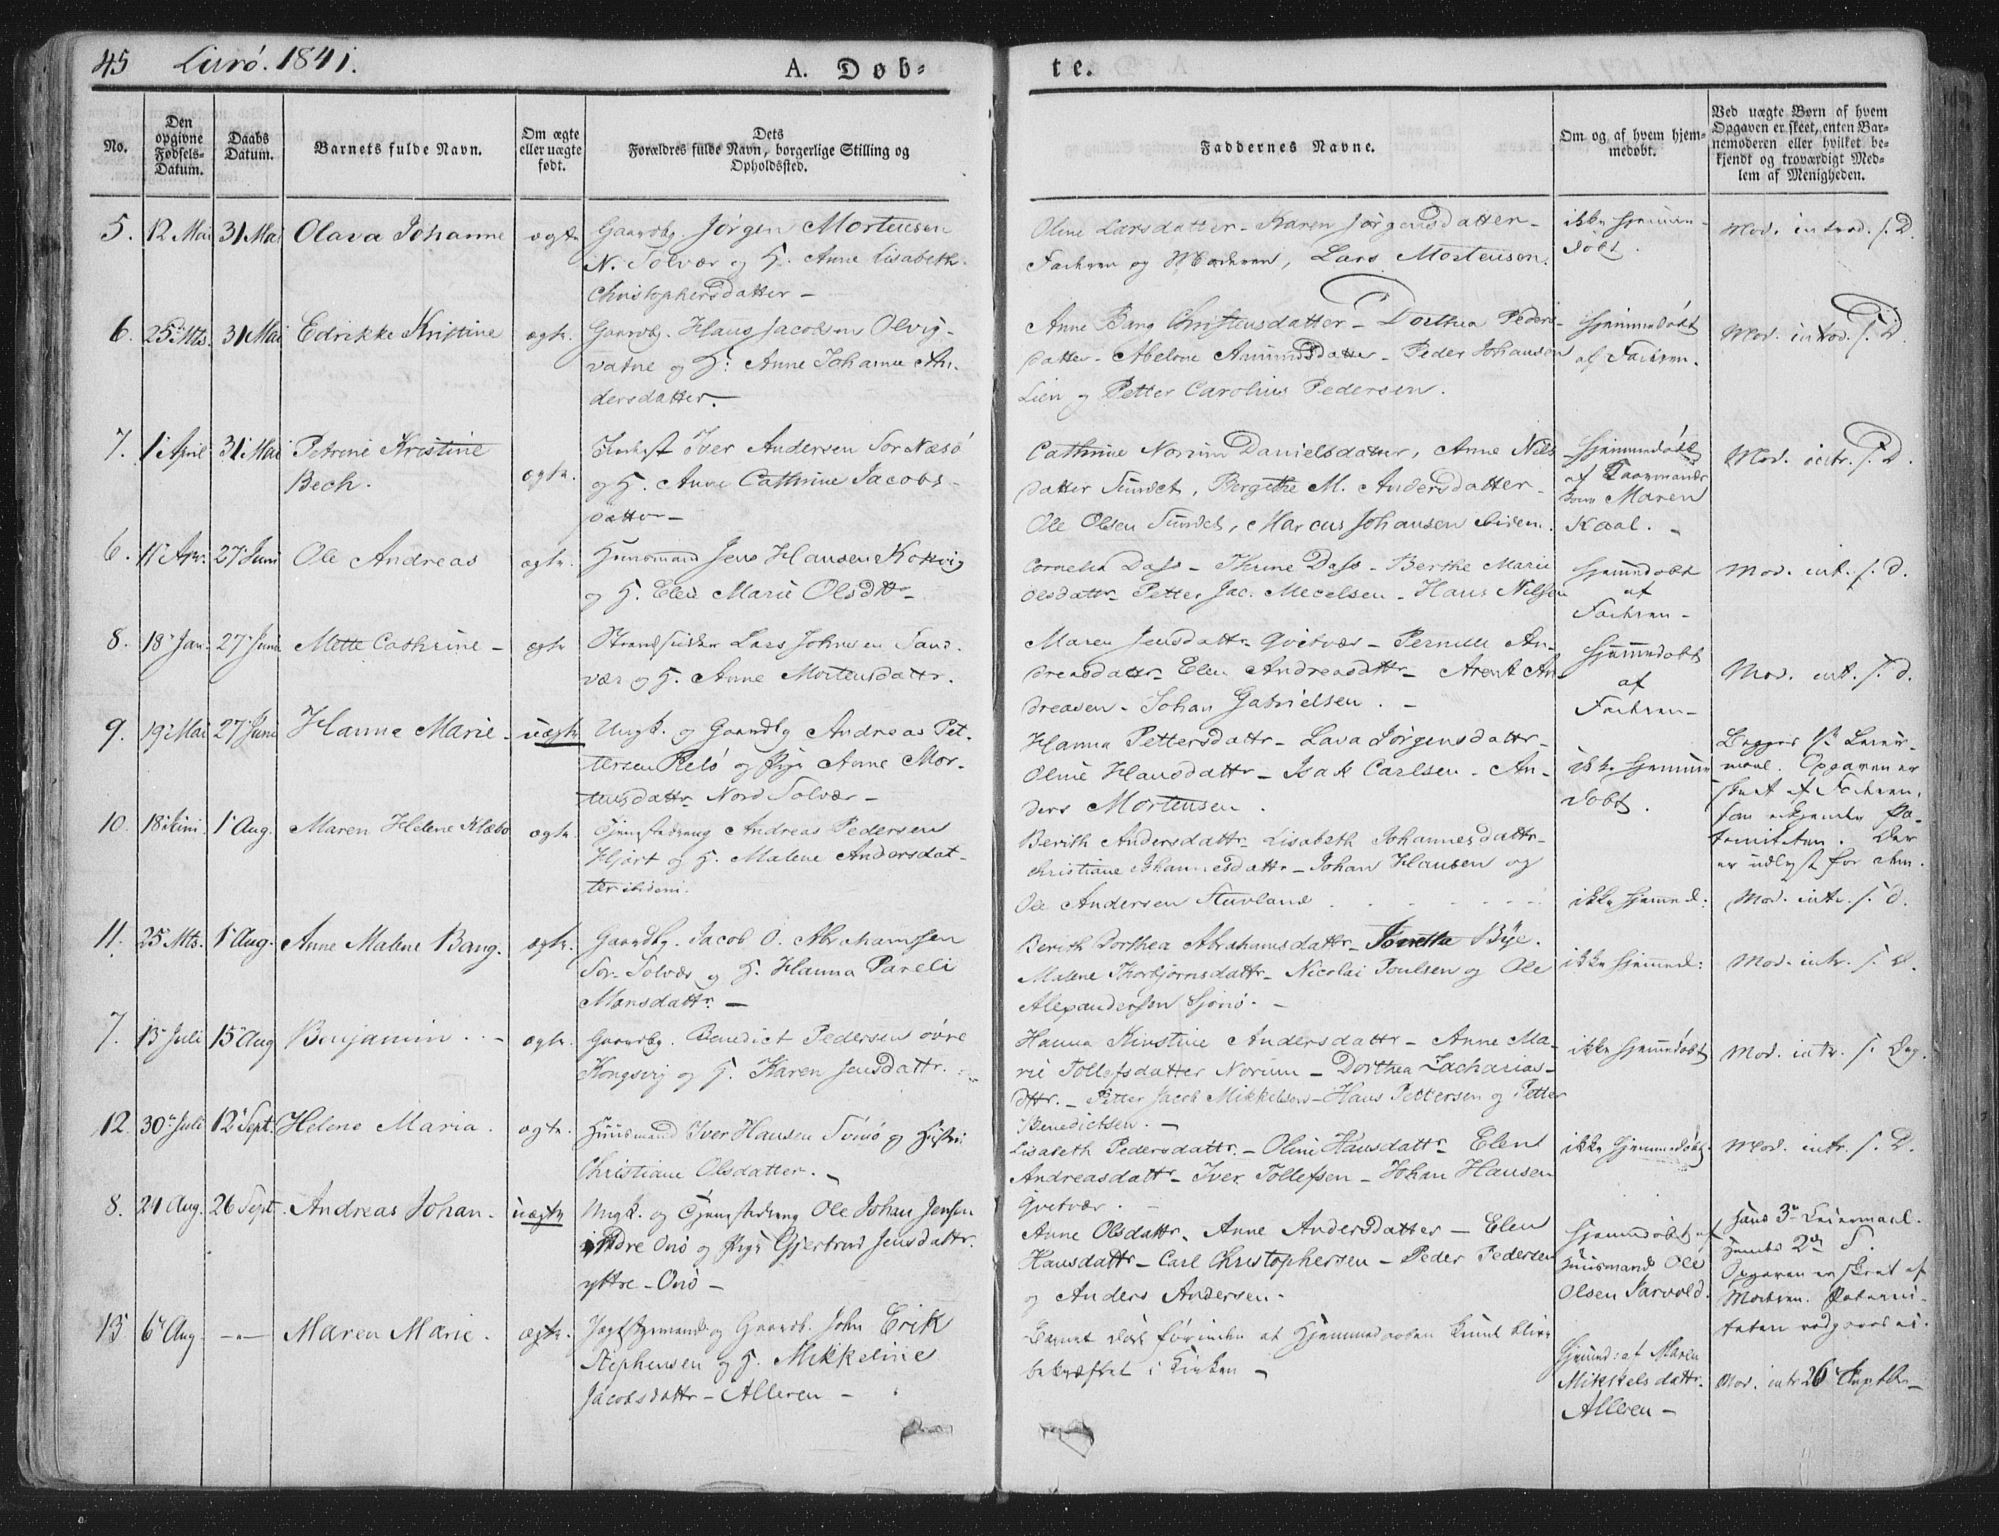 45 Lurö. 1841.
A. Døb-
te.
No.
Den opgivne Fødsels-Datum.
Daabs Datum.
Barnets fulde Navn.
Om ægte eller uægte født.
Dets Forældres fulde Navn, borgerlige Stilling og Opholdssted.
Faddernes Navne.
Om og af hvem hjemmedøbt.
Ved uægte Børn af hvem Opgaven er skeet, enten Barnemoderen eller hvilket bekjendt og troværdigt Medlem af Menigheden.
5. 12 Mai 31 Mai Olava Johanne ægte Gaardbg. Jørgen Mortensen
N. Solvær og H. Anne Lisabeth
Christophersdatter –
Oline Larsdatter – Karen Jørgensdatter –
Faderen og Moderen, Lars Mortensen.
ikke hjemme-
døbt.
Mod. introd. s. D.
6. 25 Mts. 31 Mai Edrikke Kristine ægte. Gaardbg. Hans Jacobsen Olvig-
vatne og H. Anne Johanne An-
dersdatter. –
Anne Bang Christensdatter – Dorthea Peders-
datter – Abelone Amundsdatter – Peder Johansen
Lien og Petter Carolius Pedersen.
hjemmedøbt
af Faderen.
Mod. introd. s. D.
7. 1 April 31 Mai Petrine Kristine
Bech. ægte. Inderst Iver Andersen Sor Næsö
og H. Anne Cathrine Jacobs-
datter –
Cathrine Norum Danielsdatter, Anne Nils
datter Sundet, Bergithe M. Andersdatter –
Ole Olsen Sundet, Marcus Johansen ibidem.
hjemmedøbt
af
Maren
Kaal. –
Mod. intr. s. D.
6. 11 Apr. 27 Juni Ole Andreas ægte. Huusmand Jens Hansen Kokvig
og H. Elen Marie Olsdttr –
Cornelia Dass – Thrine Dass – Berthe Marie
Olsdattr – Petter Jac. Mecelsen – Hans Nilsen
hjemmedøbt
af
Faderen –
Mod. int. s. d.
8. 18 Jan. 27 Juni Mette Cathrine – ægte Strandsidder Lars Johnsen Sand-
vær og H. Anne Mortensdattr.
Maren Jensdattr Qvitvær – Pernille An-
dreasdattr – Elen Andreasdttr – Arent An-
dreasen – Johan Gabrielsen. –
hjemmedøbt
af
Faderen –
Mod. int. s. d.
9. 19 Mai 27 Juni Hanna Marie – uægte Ungk. og Gaardbg Andreas Pet-
tersen Relö og Pige Anne Mor-
tensdattr Nord Solvær –
Hanna Pettersdattr – Lava Jørgensdattr –
Oline Hansdattr – Isak Carlsen – An-
ders Mortensen.
ikke hjemme
døbt.
Begges 1ste Leier-
maal. Opgaven er
skeet af Faderen,
som erkjendte Pa-
terniteten. Der
er udlyst for dem.
10. 18 Juni 1 Aug. Maren Helene Klæbo ægte. Tjenestedreng Andreas Pedersen
Hjort og H. Malene Andersdat-
ter ibidem.
Berith Andersdattr – Lisabeth Johannesdattr –
Christiane Johannesdattr – Johan Hansen og
Ole Andersen Stuvland
ikke hjemmed:
Mod. intr. s. d.
11. 25 Mts. 1 Aug. Anne Malene Bang. ægte. Gaardbg. Jacob O. Abrahamsen
Sor-Solvær og H. Hanna Pareli
Monsdattr. –
Berith Dorthea Abrahamsdattr – Jonetta Bye.
Malene Thorbjørnsdattr – Nicolai Poulsen og Ole
Alexandersen Sjonö. –
ikke hjemmed:
Mod. intr. s. d.
7. 13 Juli 15 Aug Benjamin. – ægte. Gaardbg. Benedict Pedersen övre
Kongsvig og H. Karen Jensdattr.
Hanna Kirstine Andersdattr – Anne Ma-
rie Tollefsdatter Norum – Dorthea Zacharias-
dttr. – Petter Jacob Mikkelsen – Hans Pettersen og Petter
Benedictsen. –
ikke hjemmedøbt
Mod. intr. s. Dag.
12. 30 Juli 12 Sept. Helene Maria. ægte. Huusmand Iver Hansen Sonö og Hustru
Christiane Olsdatter. –
Lisabeth Pedersdattr. – Oline Hansdattr – Elen
Andreasdattr – Iver Tollefsen – Johan Hansen
Qvitvær. –
ikke hjemmedøbt.
Mod. intr. s. D.
8. 24 Aug. 26 Sept. Andreas Johan. uægte Ungk. og Tjenestedreng Ole Johan Jensen
indre Onö og Pige Gjertrud Jensdattr.
yttre – Onö –
Anne Olsdattr, Anne Andersdatter – Elen
Hansdattr – Carl Christophersen – Peder Pedersen
og Anders Andersen –
hjemmedøbt af
Huusmand Ole
Olsen Sarvold.
Hans 3die Leiermaal.
Hendes 2det D.
Opgaven er skeet af
Moderen. Paterni-
teten vedgaaes ei.
13 6 Aug. – " – Maren Marie. ægte. og Gaardb. John Erik
Stephensen og H. Mikkeline
Jacobsdattr – Alleren –
Barnet døde førinden at Hjemmedaaben kunde blive
bekræftet i Kirken –
hjemmd: af Maren
Mikkelsdattr.
Alleren –
Mod. intr 26 Septbr –